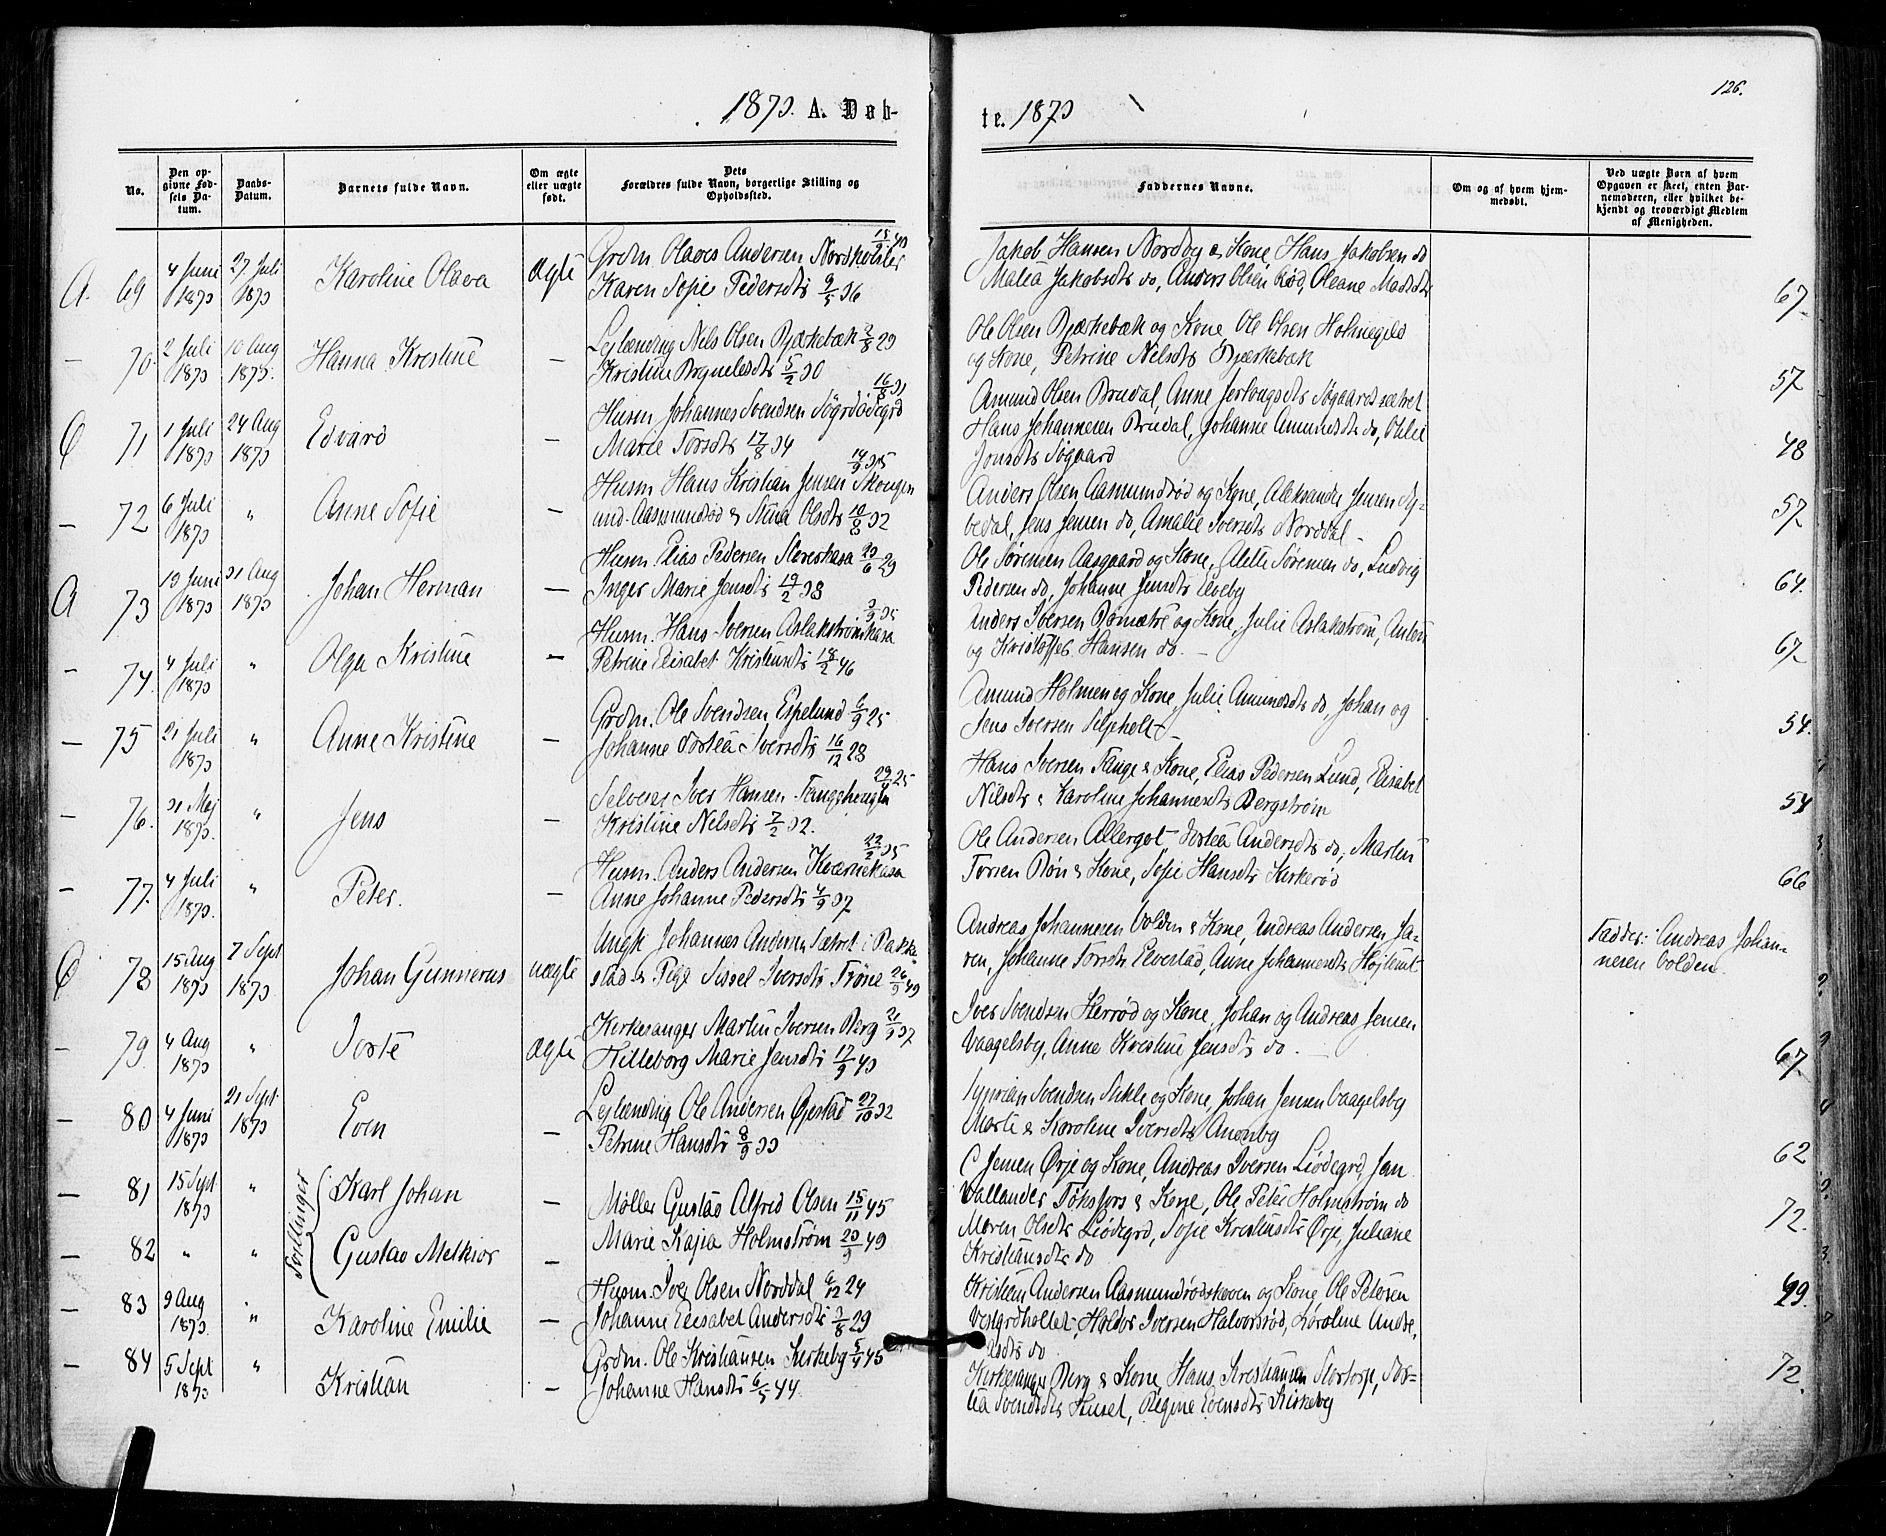 126.
1873. A. Døb-
te. 1873
No.
Den op-
givne Fød-
sels Da-
tum.
Daabs-
Datum.
Barnets fulde Navn.
Om ægte
eller uægte
født.
Dets
Forældres fulde Navn, borgerlige Stilling og
Opholdssted.
Faddernes Navne.
Om og af hvem hjem-
medøbt.
Ved uægte Børn af hvem
Opgaven er skeet, enten Bar-
nemoderen, eller hvilket be-
kjendt og troværdigt Medlem
af Menigheden.
A. 69
4 Juni
1873
27 Juli
1873
Karoline Olava
Ægte
Grdm. Olaves Andersen
Karen Sofie Pedersdtr 9/5 36
Jakob Hansen Nordby & Kone, Hans Jakobsen do
Malea Jakobsdtr do, Anders Olsen Rød, Oleane Madsdtr
67
— 70
2 Juli
1873
10 Aug
1873.
Hanna Kristine
—
Leylænding Nils Olsen Bjærkebæk 2/8 29
Kristine 5/2 30
Ole Olsen Bjærkebæk og Kone, Ole Olsen Holmegild
og Kone, Petrine Nilsdtr Bjærkebæk
57
C 71
1 Juli
1873
24 Aug
1873
Edvard
—
16/8 31
Husm. Johannes Svendsen
Marie Torsdtr 17/8 34
Amund Olsen Brudal, Anne
Hans Johannesen Brudal, Johanne Amundsdtr do,
Jonsdtr Søgaard
48
— 72
6 Juli
1873
"
Anne Sofie
—
14/9 35
Husm Hans Kristian Jensen Skougen
und. Aasmundrød & Stina Olsdtr 10/8 32
Anders Olsen Aasmundrød og Kone, Aleksander Jensen Ny-
bedal, Jens Jensen do, Amalie Iversdtr Norddal —
57
A 73
13 Juni
1873
31 Aug
1873
Johan Herman
—
Husm. Elias Pedersen 20/6 29
Inger Marie Jensdtr 19/2 38
Ole Sørensen Aasgaard og Kone, Alette Sørensen do, Ludvig
Pedersen do, Johanne Jensdtr Elveby
64.
— 74.
4 Juli
1873
"
Olga Kristine
—
3/9 35
Husm. Hans Iversen Aslakstrømkasa
Petrine Elisabet Kristensdtr 18/2 46
Anders Iversen og Kone, Julie Aslakstrøm, Anton
og Kristoffer Hansen do. —
67
— 75
21 Juli
1873
"
Anne Kristine
—
Grdm. Ole Svendsen Espelund 6/9 25
Johanne Dortea Iversdtr 16/12 28
Amund Holmen og Kone, Julie Amundsdtr do, Johan og
Jens Iversen —
54.
— 76.
31 Maj
1873.
"
Jens
—
Selveier Iver Hansen
Kristine Nelsdtr 7/2 32.
Hans Iversen Tange & Kone, Elias Pedersen Lund, Elisabet
Nilsdtr & Karoline Johannesdtr Bergstrøm
54
— 77.
4 Juli
1873.
"
Peter.
—
22/2 35
Husm. Anders Andersen Kværnekasa
Anne Johanne Pedersdtr 4/9 37
Ole Andersen Allergot, Dortea Andersdtr do, Martin
Torsen Røn & Kone, Sofie Hansdtr Kirkerød
66
C 78
15 Aug
1873
7 Sept
1873
Johan Gunnerus
uægte
Ungk Johannes Andersen Sætret i Rakke-
stad & Pige Sissel Iversdtr Trøne 26/9 49
Andreas Johannesen Volden & Kone, Andreas Andersen Ja-
ren, Johanne Torsdtr Elvestad, Anne Johannesdtr
Fadder: Andreas Johan-
nesen Volden.
— 79.
4 Aug
1873
"
Dorte
Ægte
Kirkesanger Martin Iversen Berg 21/9 37
Hilleborg Marie Jensdtr 17/9 43
Iver Svendsen Herrød og Kone, Johan og Andreas Jensen
Vaagelsby, Anne Kristine Jensdtr do. —
67
— 80
4 Juni
1873
21 Sept
1873
Even
—
Leylænding Ole Andersen Øiestad 27/10 32
Petrine Hansdtr 8/9 33
Syprian Svendsen Sikle og Kone, Johan Jensen Vaagelsby
Marte & Karoline Iversdtr
62
— 81
15 Sept
1873
"
Tvillinger
Karl Johan
—
Møller Gustav Alfred Olsen 15/11 45
Marie Kajia Holmstrøm 20/9 49
C Jensen Ørje og Kone, Andreas Iversen Liødegrd, Jan
Vallander Tøksfors & Kone, Ole Peter Holmstrøm do
Maren Olsdtr Liødegrd, Sofie Kristensdtr Ørje, Juliane
Kristiansdtr do
72.
— 82
"
"
Gustav Melkior
—
— 83
9 Aug
1873.
"
Karoline Emilie
—
Husm. Iver Olsen Norddal 6/12 24
Johanne Elisabet Andersdtr 3/8 29
Kristian Andersen Aasmundrødskoven og Kone, Ole Petersen
Vestgrdholtet, Haldor Iversen Halvorsrød, Karoline Andre-
asdtr do
49.
— 84
5 Sept
1873
"
Kristian
—
Grdm. Ole Kristiansen Kirkeby 5/4 45
Johanne Hansdtr 6/5 44.
Kirkesanger Berg & Kone, Hans Kristiansen Stortorp, Dor-
tea Svendsdtr Huset, Regine Evensdtr Kirkeby
72.